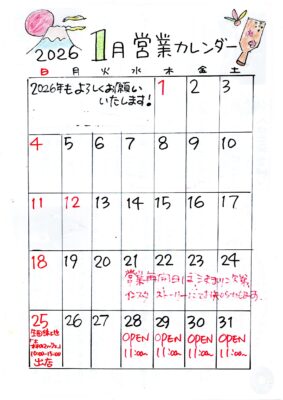 2026 1月営業カレンダー
日 月 火 水 木 金 土
2026年もよろしくお願い
いたします!
1 2 3
4 5 6 7 8 9 10
11 12 13 14 15 16 17
18 19 20 21 22 23 24
営業再開日は決まり次第
インスタ ストーリーにてお知らせします
25 26 27 28 29 30 31
OPEN OPEN OPEN OPEN
11:00~ 11:00~ 11:00~ 11:00~
10:00-15:00
出店